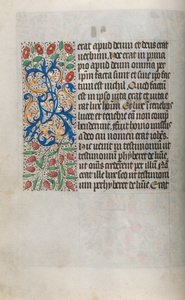 erat apud deum et deus erat
verbum. Hoc erat in princi
pio apud deum omnia per
ipsum facta sunt et sine ipso fac
tum est nichil. Quod factum
est in ipso vita erat et vita e
rat lux hominum Et lux in tenebris
lucet et tenebre eam non comp
hendereunt. fuit homo missus
a deo cui nomen erat iohes.
hic venit in testimonium ut
testimonium phiberet de lumine
ut omnes crederent per illum Non
erat ille lux sed ut testimoni
um perhyberet de lumine Erat